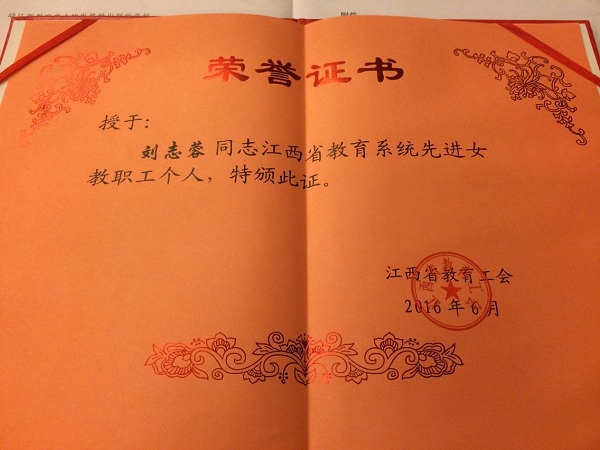 荣誉证书
授于：
刘志蓉同志江西省教育系统先进女
教职工个人，特颁此证。
江西省教育工会
2016年6月